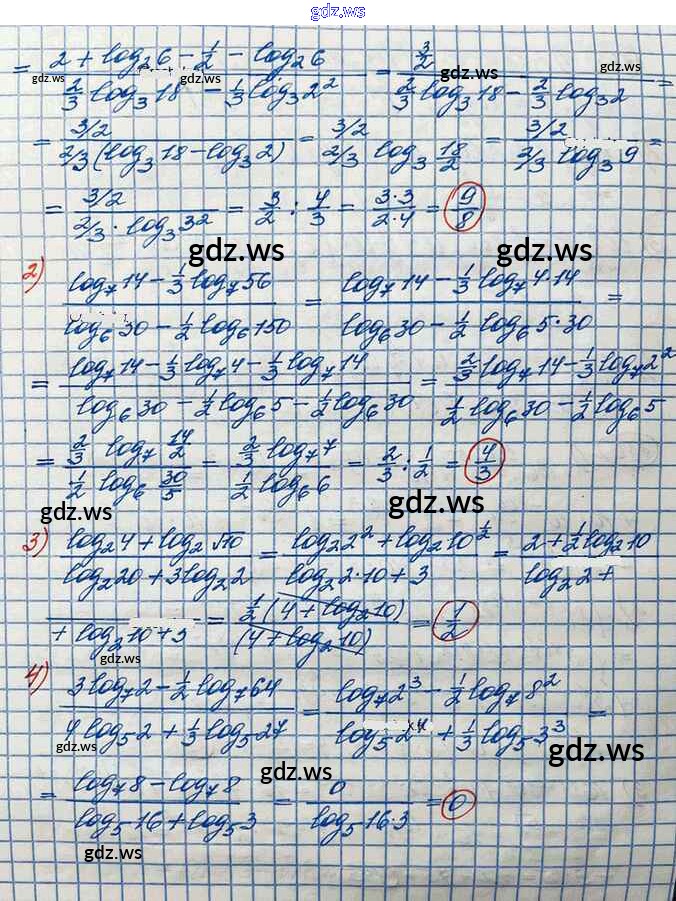 gdz.ws
= (2 + log₂6 - 1/2 - log₂6) / (2/3 log₃18 - 1/3 log₃2²) = (3/2) / (2/3 log₃18 - 2/3 log₃2) =
gdz.ws gdz.ws gdz.ws gdz.ws
= (3/2) / (2/3 (log₃18 - log₃2)) = (3/2) / (2/3 log₃ 18/2) = (3/2) / (2/3 log₃9) =
= (3/2) / (2/3 · log₃3²) = 3/2 : 4/3 = (3·3)/(2·4) = 9/8
gdz.ws gdz.ws
2) (log₇14 - 1/3 log₇56) / (log₆30 - 1/2 log₆150) = (log₇14 - 1/3 log₇4·14) / (log₆30 - 1/2 log₆5·30) =
= (log₇14 - 1/3 log₇4 - 1/3 log₇14) / (log₆30 - 1/2 log₆5 - 1/2 log₆30) = (2/3 log₇14 - 1/3 log₇2²) / (1/2 log₆30 - 1/2 log₆5)
= (2/3 log₇ 14/2) / (1/2 log₆ 30/5) = (2/3 log₇7) / (1/2 log₆6) = 2/3 : 1/2 = 4/3
gdz.ws gdz.ws
3) (log₂4 + log₂√10) / (log₂20 + 3log₂2) = (log₂2² + log₂10^(1/2)) / (log₂2·10 + 3) = (2 + 1/2 log₂10) / (log₂2 +
/ (+ log₂10 + 3) = (1/2 (4 + log₂10)) / (4 + log₂10) = 1/2
gdz.ws gdz.ws
4) (3log₇2 - 1/2 log₇64) / (4log₅2 + 1/3 log₅27) = (log₇2³ - 1/2 log₇8²) / (log₅2⁴ + 1/3 log₅3³) =
gdz.ws gdz.ws
gdz.ws
= (log₇8 - log₇8) / (log₅16 + log₅3) = 0 / (log₅16·3) = 0
gdz.ws gdz.ws